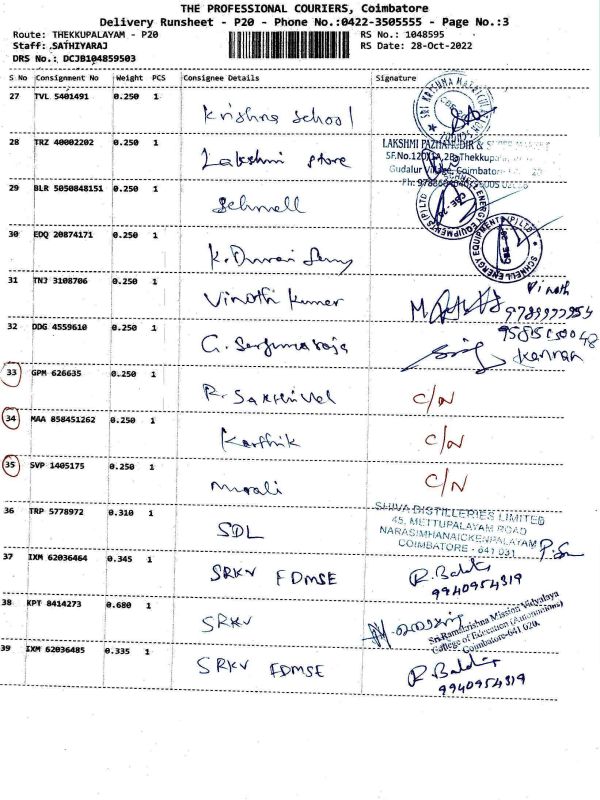 THE PROFESSIONAL COURIERS, Coimbatore
Delivery Runsheet - P20 - Phone No.:0422-3505555 - Page No.:3
Route: THEKKUPALAYAM - P20 RS No.: 1048595
Staff: SATHIYARAJ RS Date: 28-Oct-2022
DRS No.: DCJB104859503
S No Consignment No Weight PCS Consignee Details Signature
27 TVL 5401491 0.250 1 Krishna School
SRI KRISHNA MATRICULATION
28 TRZ 40002202 0.250 1 Lakshmi Store
LAKSHMI PAZHAMUDIR &
SF.No.120/1A,2B, Thekkupalayam
Gudalur Village, Coimbatore
29 BLR 5050848151 0.250 1 Schnell
SCHNELL ENERGY EQUIPMENTS (P) LTD
30 EDQ 20874171 0.250 1 K. Durai Samy
SCHNELL ENERGY EQUIPMENTS (P) LTD
31 TNJ 3108706 0.250 1 Vinoth Kumar Vinoth
32 DDG 4559610 0.250 1 G. Kannan
33 GPM 626635 0.250 1 R. Sakthivel C/N
34 MAA 858451262 0.250 1 Karthik C/N
35 SVP 1405175 0.250 1 murali C/N
36 TRP 5778972 0.310 1 SDL
SHIVA DISTILLERIES LIMITED
45, METTUPALAYAM ROAD
NARASIMHANAICKENPALAYAM
COIMBATORE - 641 031
37 IXM 62036464 0.345 1 SRKV FDMSE R. Balaji
9940954319
38 KPT 8414273 0.680 1 SRKV
Sri Ramakrishna Mission Vidyalaya
College of Education (Autonomous)
Coimbatore-641 020.
39 IXM 62036485 0.335 1 SRKV FDMSE R. Balaji
9940954319